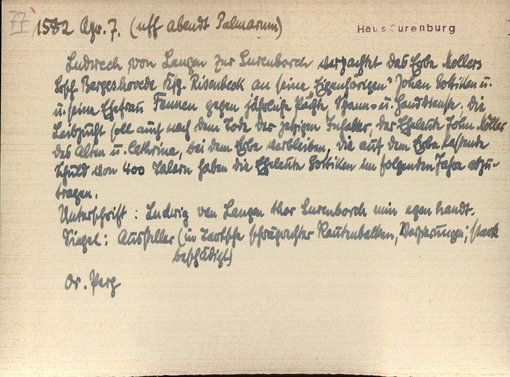 77
1582 Apr. 7. (uff abendt Palmarum)
Haus Surenburg
Ludwich von Langen zur Surenborch verpachtet das Erbe Mollers
Bsch. Bergeshovede Ksp. Risenbeck an seine "Eigenhorigen" Johan u.
u. seine Ehefrau Fennen gegen jährliche Pächte, Spann- u. Handdienste. Die
Leibzucht soll auch nach dem Tode der jetzigen Inhaber, der Eheleute John Möller
des Alten u. Cathrine, bei dem Erbe verbleiben, die auf dem Erbe lastende
Schuld von 400 Talern haben die Eheleute im folgenden Jahre abzu-
tragen.
Unterschrift: Ludwig van Langen thor Surenborch min egen handt.
Siegel: Aussteller (in Kartusche schrägrechter Rautenbalken, stark
beschädigt)
Or. Perg